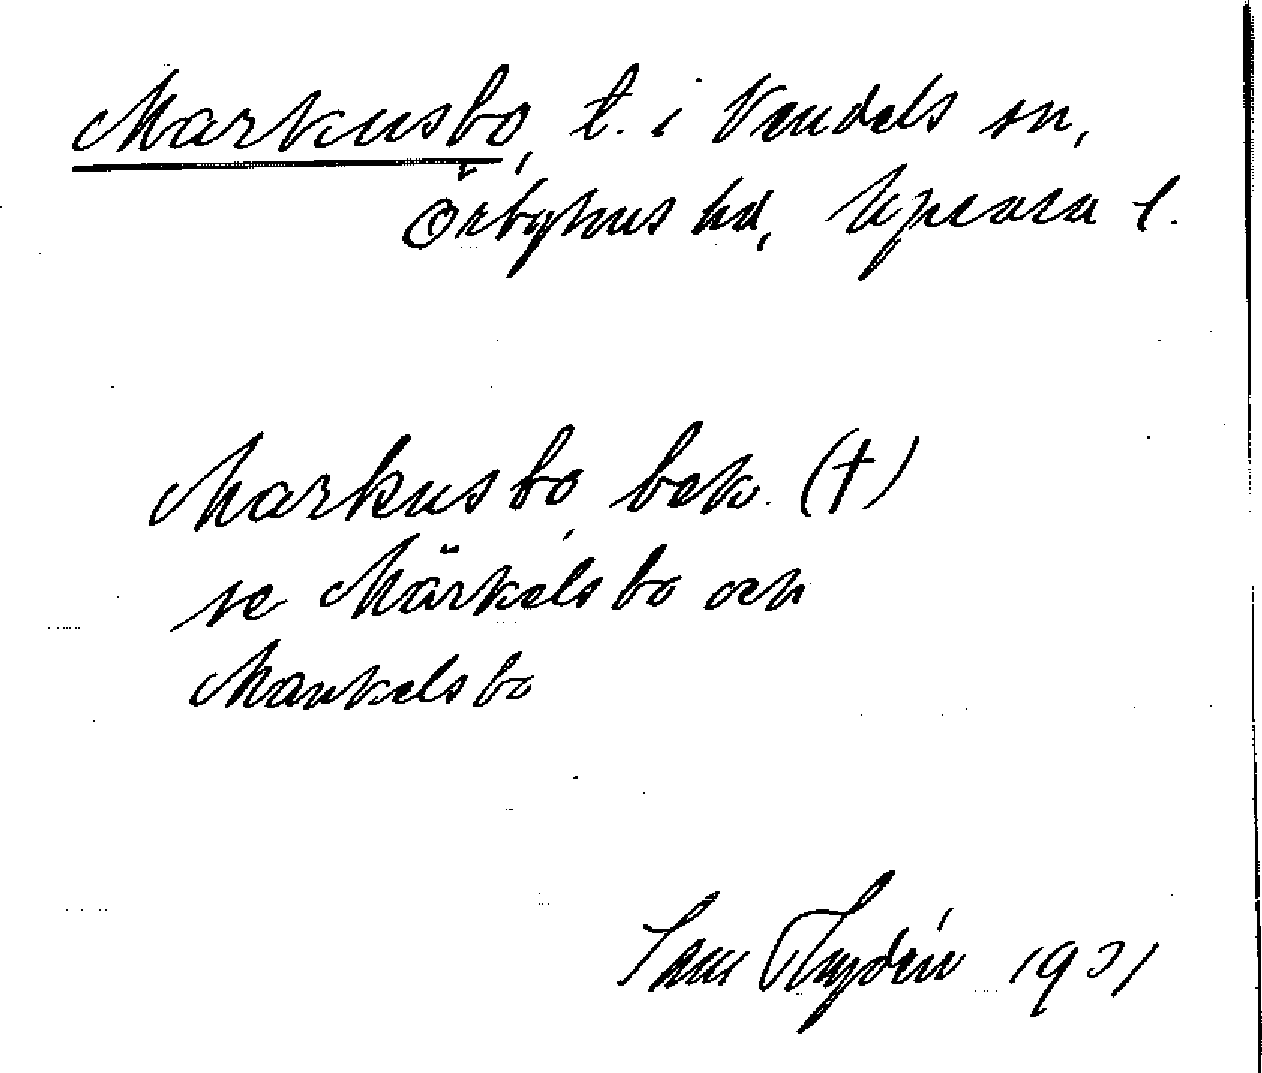 Markusbo, t. i Vendels sn,
Örbyhus hd, Uppsala l.
Markusbo, bek. (†)
se Märkelsbo och
Mankelsbo
Sam 1931